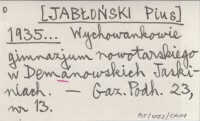 [JABŁOŃSKI Pius]
1935... Wychowankowie
gimnazjum nowotarskiego
w Demänowskich Jaski-
niach. — Gaz. Podh. 23,
nr 13.